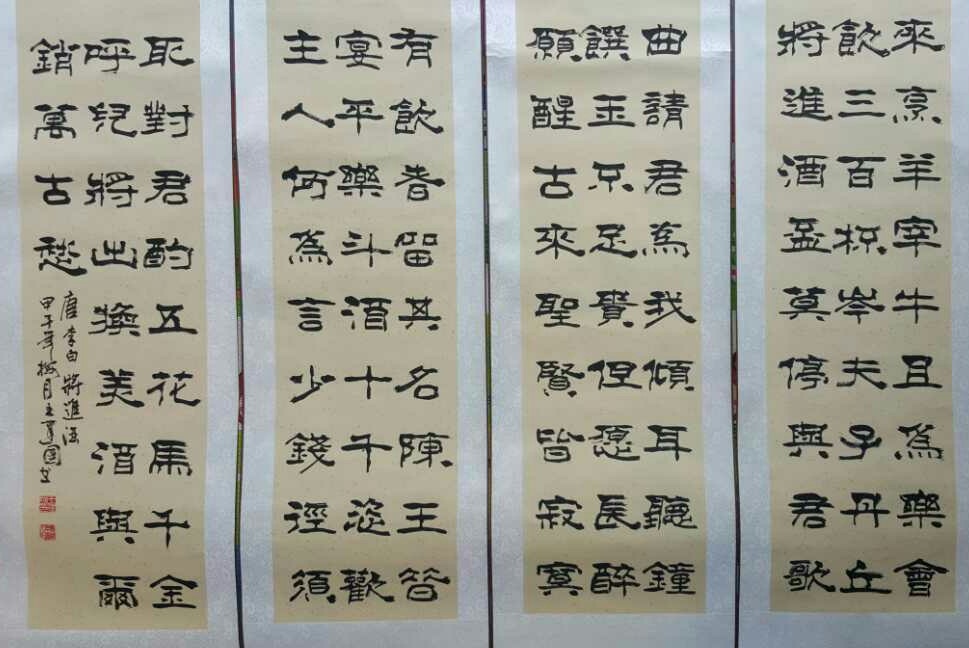 來烹羊宰牛且為樂會
飲三百杯岑夫子丹丘
將進酒盃莫停與君歌
曲請君為我傾耳聽鐘
饌玉不足貴但愿長醉
願醒古來聖賢皆寂寞
有飲者留其名陳王昔
宴平樂斗酒十千恣歡
主人何為言少錢徑須
耴對君酌五花馬千金
呼兒將出換美酒與爾
銷萬古愁
唐李白將進酒
甲子年 月王 國書